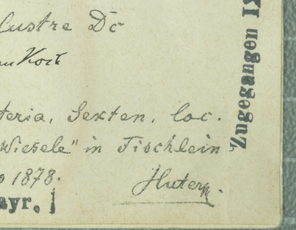 lustre Dc
Koch
teria, Sexten, loc.
Wiesele" in Fischlein
o 1878.
Huter.
ayr.
Zugegangen 1